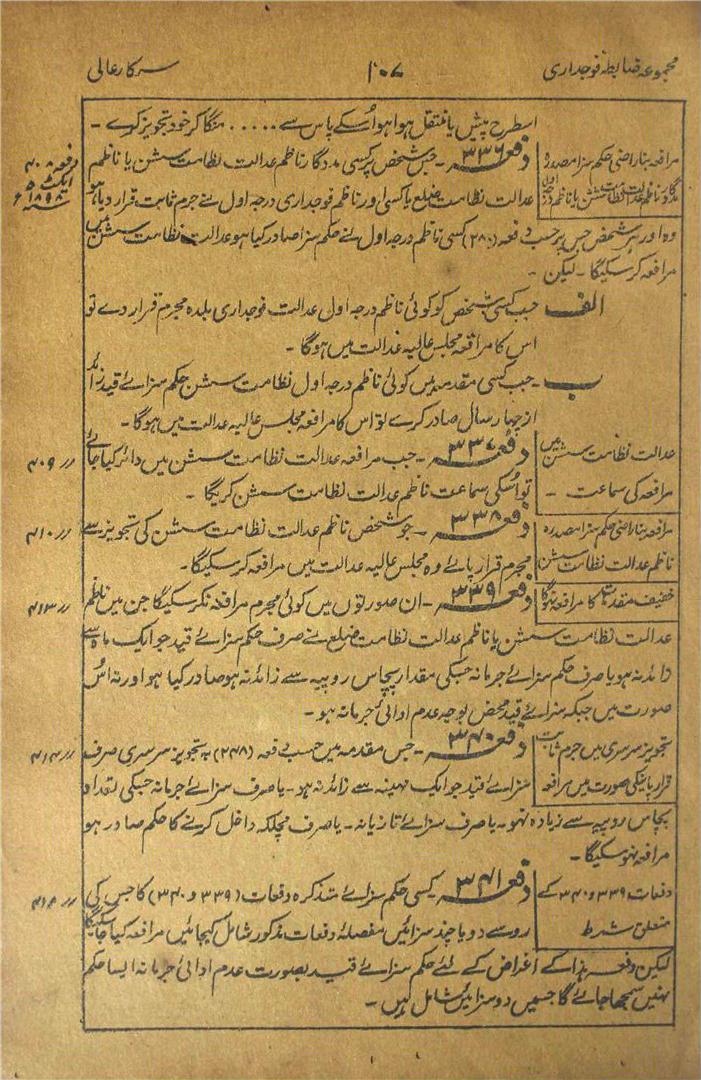 مجموعہ ضابطہ فوجداری
۱۰۷
سرکار عالی
اسطرح پیش یا منتقل ہوا ہو اُسکے پاس سے ..... منگا کر خود تجویز کرے ۔
مرافعہ بناراضی حکم سزا مصدرہ
مددگار ناظم عدالت نظامت سشن یا ناظم درجہ اول
دفعہ ۳۳۶ ۔ جس شخص پر کسی مددگار ناظم عدالت نظامت سشن یا ناظم
عدالت نظامت ضلع یا کسی اور ناظم فوجداری درجہ اول نے جرم ثابت قرار دیا ہو
دفعہ ۴۰۸
ایکٹ ۵
سنہ ۱۸۹۸ء
وہ اور ہر شخص جس پر حسب دفعہ (۲۸۰) کسی ناظم درجہ اول نے حکم سزا صادر کیا ہو عدالت نظامت سشن میں
مرافعہ کر سکیگا ۔ لیکن ۔
الف جب کسی شخص کو کوئی ناظم درجہ اول عدالت فوجداری بلدہ مجرم قرار دے تو
اس کا مرافعہ مجلس عالیہ عدالت میں ہوگا ۔
ب ۔ جب کسی مقدمہ میں کوئی ناظم درجہ اول نظامت سشن حکم سزائے قید زائد
از چہار سال صادر کرے تو اس کا مرافعہ مجلس عالیہ عدالت میں ہوگا ۔
عدالت نظامت سشن میں
مرافعہ کی سماعت ۔
دفعہ ۳۳۷ ۔ جب مرافعہ عدالت نظامت سشن میں دائر کیا جائے
تو اُسکی سماعت ناظم عدالت نظامت سشن کریگا ۔
〃 ۴۰۹
مرافعہ بناراضی حکم سزا مصدرہ
ناظم عدالت نظامت سشن
دفعہ ۳۳۸ ۔ جو شخص ناظم عدالت نظامت سشن کی تجویز سے
مجرم قرار پائے وہ مجلس عالیہ عدالت میں مرافعہ کر سکیگا ۔
〃 ۴۱۰
خفیف مقدمات کا مرافعہ نہوگا
دفعہ ۳۳۹ ۔ ان صورتوں میں کوئی مجرم مرافعہ نکر سکیگا جن میں ناظم
〃 ۴۱۳
عدالت نظامت سشن یا ناظم عدالت نظامت ضلع نے صرف حکم سزائے قید جو ایک ماہ سے
زائد نہ ہو یا صرف حکم سزائے جرمانہ جسکی مقدار پچاس روپیہ سے زائد نہ ہو صادر کیا ہو اور نہ اُس
صورت میں جبکہ سزائے قید محض بوجہ عدم ادائی جرمانہ ہو ۔
تجویز سرسری میں جرم ثابت
قرار پانیکی صورت میں مرافعہ
دفعہ ۳۴۰ ۔ جس مقدمہ میں حسب دفعہ (۲۴۸) بہ تجویز سرسری صرف
سزائے قید جو ایک مہینہ سے زائد نہ ہو ۔ یا صرف سزائے جرمانہ جسکی تعداد
〃 ۴۱۴
پچاس روپیہ سے زیادہ نہو ۔ یا صرف سزائے تازیانہ ۔ یا صرف مچلکہ داخل کرنے کا حکم صادر ہو
مرافعہ نہو سکیگا ۔
دفعات ۳۳۹ و ۳۴۰ کے
متعلق شرط
دفعہ ۳۴۱ ۔ کسی حکم سزائے متذکرہ دفعات (۳۳۹ و ۳۴۰) کا جس کی
روسے دو یا چند سزائیں مفصلۂ دفعات مذکور شامل کیجائیں مرافعہ کیا جا سکیگا
لیکن دفعہ ہذا کے اغراض کے لئے حکم سزائے قید بصورت عدم ادائی جرمانہ ایسا حکم
نہیں سمجھا جائے گا جسمیں دو سزائیں شامل ہیں ۔